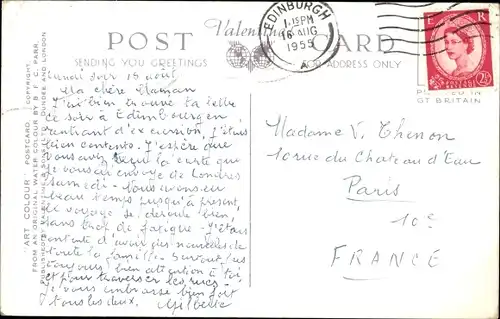 POST
Valentine's
CARD
SENDING YOU GREETINGS
FOR ADDRESS ONLY
EDINBURGH
1.15 PM
16 AUG
1955
E R
2½
OT BRITAIN
"ART COLOUR" POSTCARD. COPYRIGHT
FROM AN ORIGINAL WATER COLOUR BY B. F. C. PARR.
DUNDEE AND LONDON
Lundi soir 15 août
Ma chère Maman
J'ai bien trouvé ta lettre
ce soir à Edimbourg en
rentrant d'excursion, j'étais
bien contente. J'espère que
vous avez reçu la carte que
je vous ai envoyé de Londres
samedi - Nous avons eu
beau temps jusqu'à présent,
le voyage se déroule bien,
sans trop de fatigue - J'étais
contente d'avoir des nouvelles de
toute la famille - Surtout fais
toujours bien attention à toi
et pour traverser les rues -
Je vous embrasse bien fort
tous les deux.
Madame V. Thenon
10 rue du Chateau d'Eau
Paris
10e
FRANCE